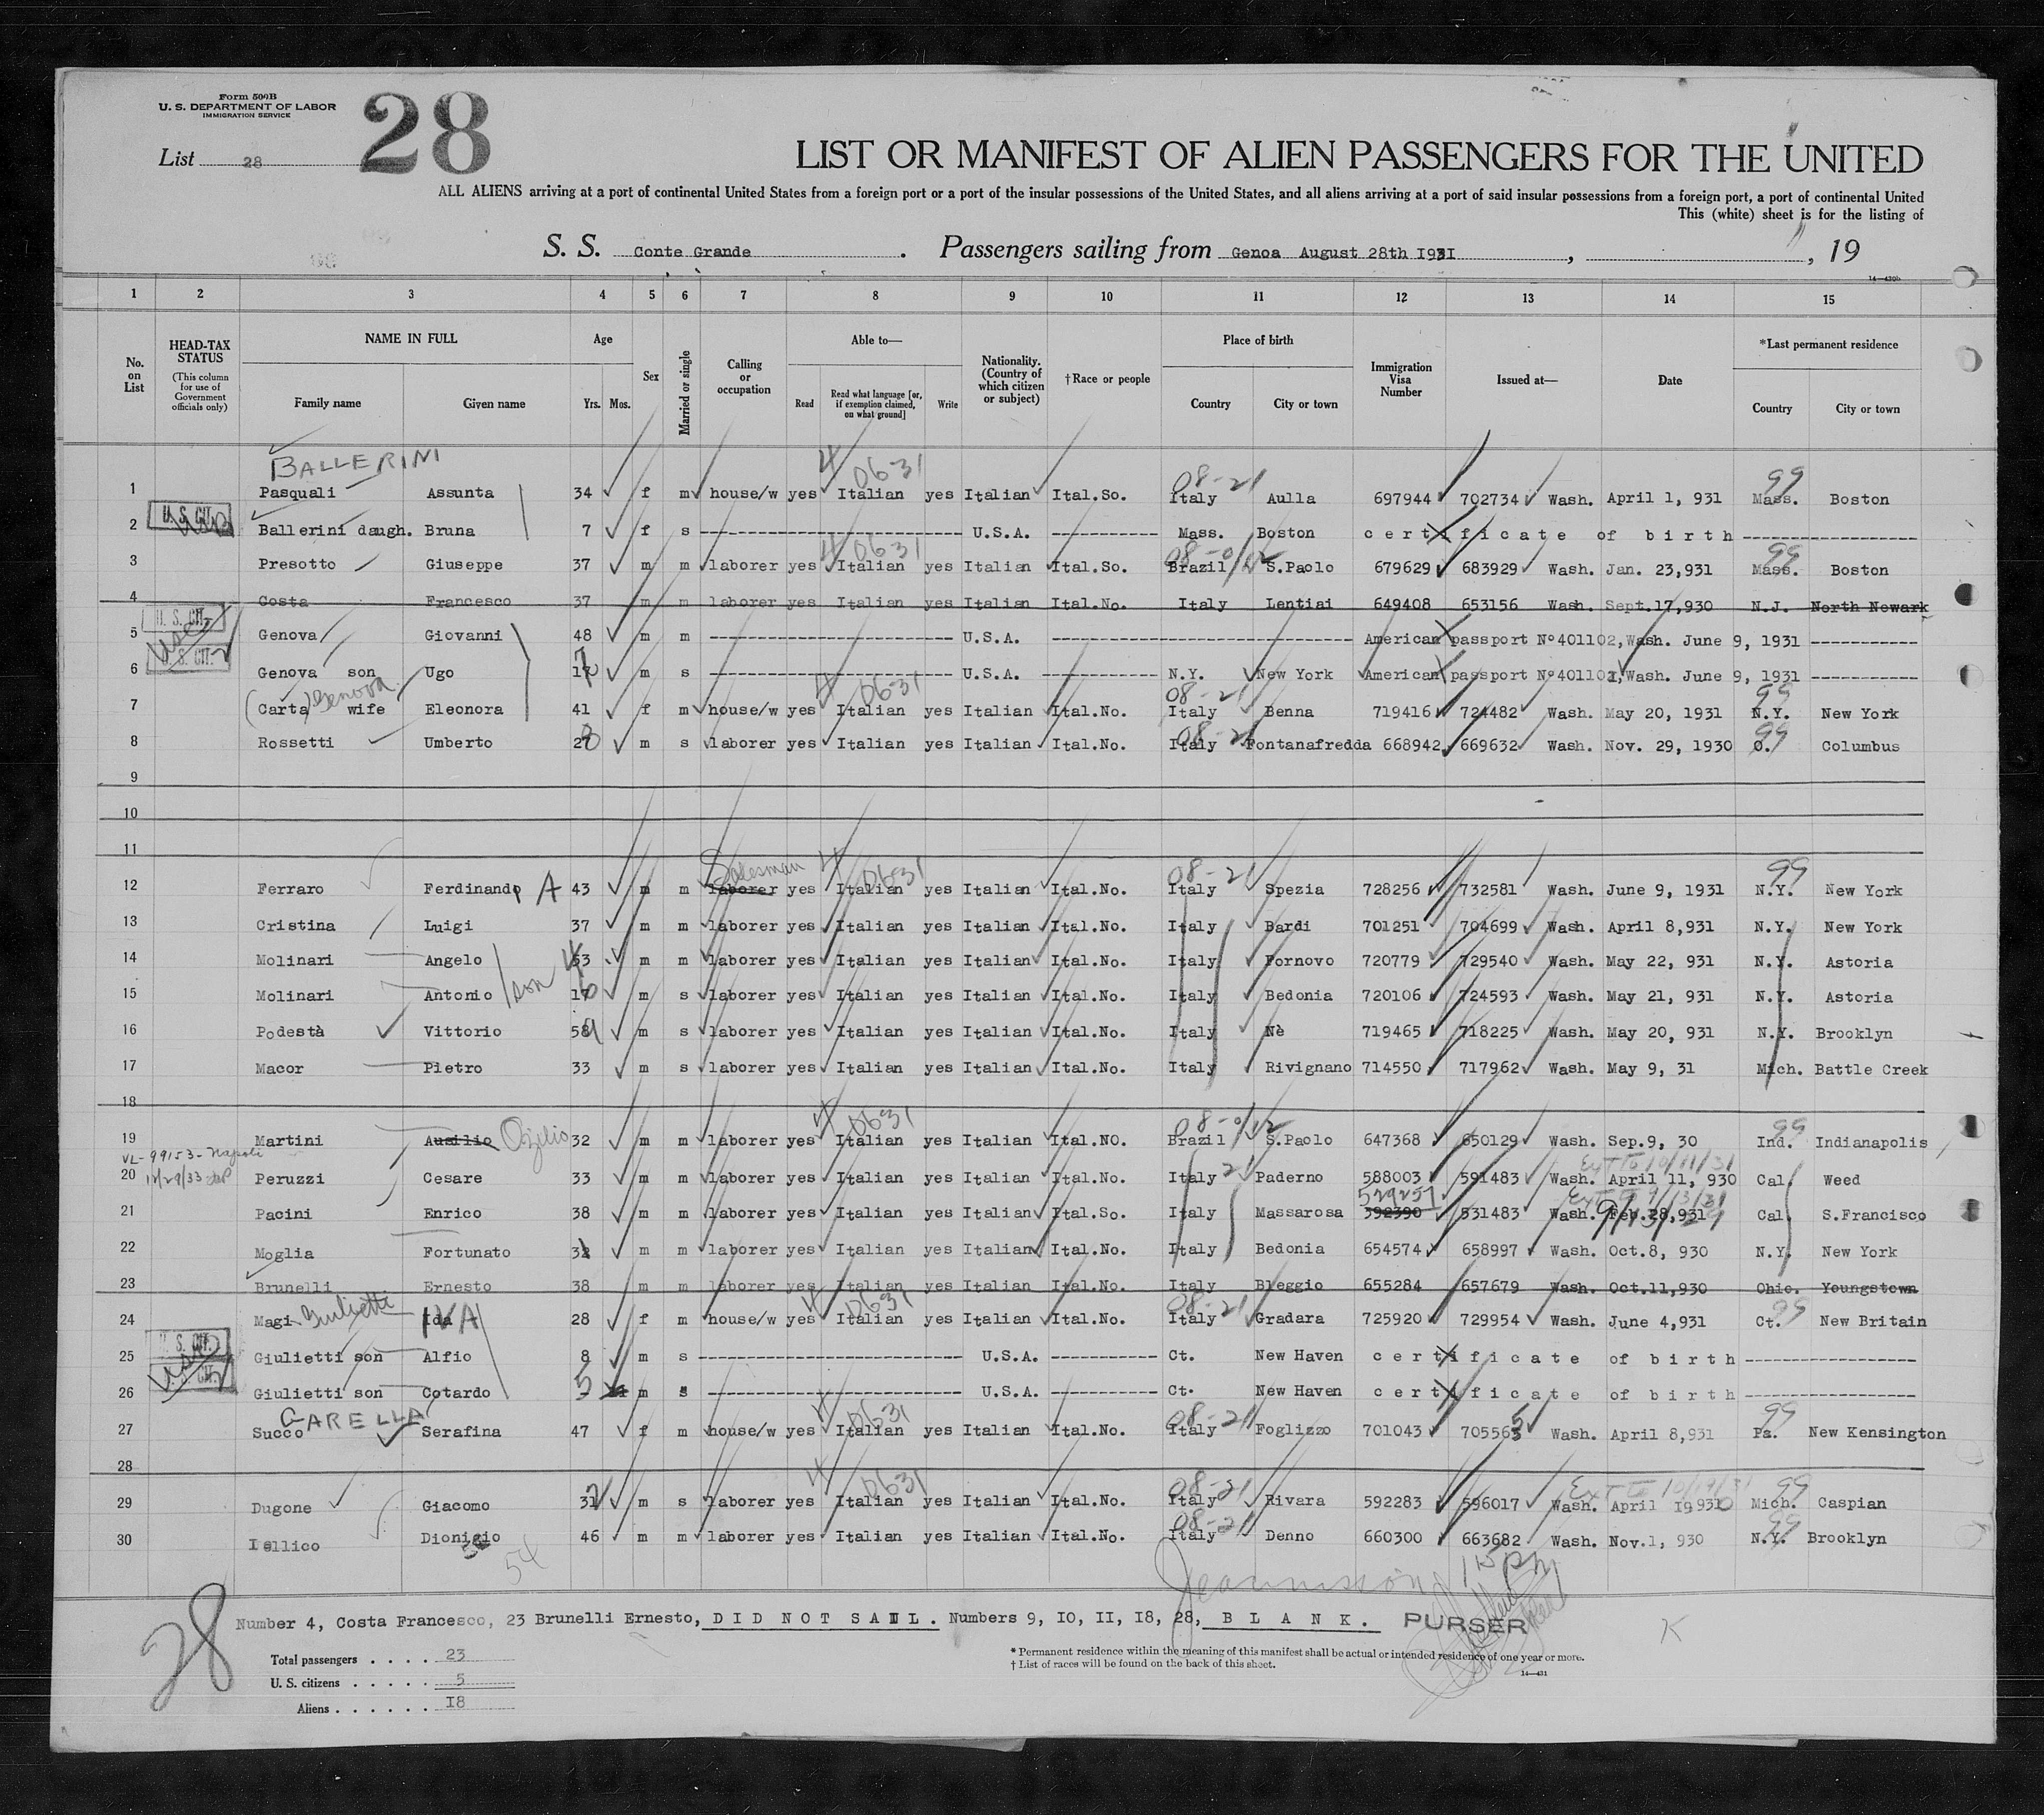 Form 500B
U. S. DEPARTMENT OF LABOR
IMMIGRATION SERVICE
28
List 28
LIST OR MANIFEST OF ALIEN PASSENGERS FOR THE UNITED
ALL ALIENS arriving at a port of continental United States from a foreign port or a port of the insular possessions of the United States, and all aliens arriving at a port of said insular possessions from a foreign port, a port of continental United
This (white) sheet is for the listing of
S. S. Conte Grande. Passengers sailing from Genoa August 28th I931, , 19
14—430b
1 2 3 4 5 6 7 8 9 10 11 12 13 14 15
No. on List
HEAD-TAX STATUS (This column for use of Government officials only)
NAME IN FULL Family name Given name
Age Yrs. Mos.
Sex
Married or single
Calling or occupation
Able to— Read Read what language [or, if exemption claimed, on what ground] Write
Nationality. (Country of which citizen or subject)
†Race or people
Place of birth Country City or town
Immigration Visa Number
Issued at—
Date
*Last permanent residence Country City or town
BALLERINI 4 0631 08-21 99
1 Pasquali Assunta 34 f m house/w yes Italian yes Italian Ital.So. Italy Aulla 697944 702734 Wash. April 1, 931 Mass. Boston
U. S. CIT.
2 Ballerini daugh. Bruna 7 f s U.S.A. Mass. Boston certificate of birth
4 0631 99
3 Presotto Giuseppe 37 m m laborer yes Italian yes Italian Ital.So. Brazil S.Paolo 679629 683929 Wash. Jan. 23,931 Mass. Boston
4 Costa Francesco 37 m m laborer yes Italian yes Italian Ital.No. Italy Lentiai 649408 653156 Wash. Sept.17,930 N.J. North Newark
U. S. CIT.
5 Genova Giovanni 48 m m U.S.A. American passport Nº401102, Wash. June 9, 1931
U. S. CIT.
6 Genova son Ugo m s U.S.A. N.Y. New York American passport Wash. June 9, 1931
Genova 4 0631 08-21 99
7 (Carta) wife Eleonora 41 f m house/w yes Italian yes Italian Ital.No. Italy Benna 719416 724482 Wash. May 20, 1931 N.Y. New York
08-21 99
8 Rossetti Umberto 28 m s laborer yes Italian yes Italian Ital.No. Italy Fontanafredda 668942 669632 Wash. Nov. 29, 1930 O. Columbus
9
10
11
Salesman 4 0631 08-21 99
12 Ferraro Ferdinando A 43 m m laborer yes Italian yes Italian Ital.No. Italy Spezia 728256 732581 Wash. June 9, 1931 N.Y. New York
13 Cristina Luigi 37 m m laborer yes Italian yes Italian Ital.No. Italy Bardi 701251 704699 Wash. April 8,931 N.Y. New York
14 Molinari Angelo m m laborer yes Italian yes Italian Ital.No. Italy Fornovo 720779 729540 Wash. May 22, 931 N.Y. Astoria
15 Molinari Antonio son m s laborer yes Italian yes Italian Ital.No. Italy Bedonia 720106 724593 Wash. May 21, 931 N.Y. Astoria
16 Podestà Vittorio 59 m s laborer yes Italian yes Italian Ital.No. Italy Nè 719465 718225 Wash. May 20, 931 N.Y. Brooklyn
17 Macor Pietro 33 m s laborer yes Italian yes Italian Ital.No. Italy Rivignano 714550 717962 Wash. May 9, 31 Mich. Battle Creek
18
4 0631 99
19 Martini Ausilio Ozilio 32 m m laborer yes Italian yes Italian Ital.NO. Brazil S.Paolo 647368 650129 Wash. Sep.9, 30 Ind. Indianapolis
VL-99153-Napoli
Ext to 10/11/31
20 Peruzzi Cesare 33 m m laborer yes Italian yes Italian Ital.No. Italy 21 Paderno 588003 591483 Wash. April 11, 930 Cal. Weed
529257
21 Pacini Enrico 38 m m laborer yes Italian yes Italian Ital.So. Italy Massarosa 392390 531483 Wash. Feb.28,931 Cal. S.Francisco
22 Moglia Fortunato m m laborer yes Italian yes Italian Ital.No. Italy Bedonia 654574 658997 Wash. Oct.8, 930 N.Y. New York
23 Brunelli Ernesto 38 m m laborer yes Italian yes Italian Ital.No. Italy Bleggio 655284 657679 Wash. Oct.11,930 Ohio. Youngstown
Giulietti 4 0631 08-21 99
24 Magi Ida IVA 28 f m house/w yes Italian yes Italian Ital.No. Italy Gradara 725920 729954 Wash. June 4,931 Ct. New Britain
U. S. CIT.
25 Giulietti son Alfio 8 m s U.S.A. Ct. New Haven certificate of birth
26 Giulietti son Cotardo 5 m s U.S.A. Ct. New Haven certificate of birth
GARELLA 4 0631 08-21 99
27 Succo Serafina 47 f m house/w yes Italian yes Italian Ital.No. Italy Foglizzo 701043 705565 Wash. April 8,931 Pa. New Kensington
28
4 0631 08-21 Ext to 10/19/31 99
29 Dugone Giacomo 32 m s laborer yes Italian yes Italian Ital.No. Italy Rivara 592283 596017 Wash. April 19 930 Mich. Caspian
08-21 99
30 Iellico Dionigio 46 m m laborer yes Italian yes Italian Ital.No. Italy Denno 660300 663682 Wash. Nov.1, 930 N.Y. Brooklyn
54
115 PM
28
Number 4, Costa Francesco, 23 Brunelli Ernesto, DID NOT SAIL. Numbers 9, IO, II, I8, 28, BLANK. PURSER
K
Total passengers . . . . 23
U. S. citizens . . . . . 5
Aliens . . . . . . I8
* Permanent residence within the meaning of this manifest shall be actual or intended residence of one year or more.
† List of races will be found on the back of this sheet.
14—431